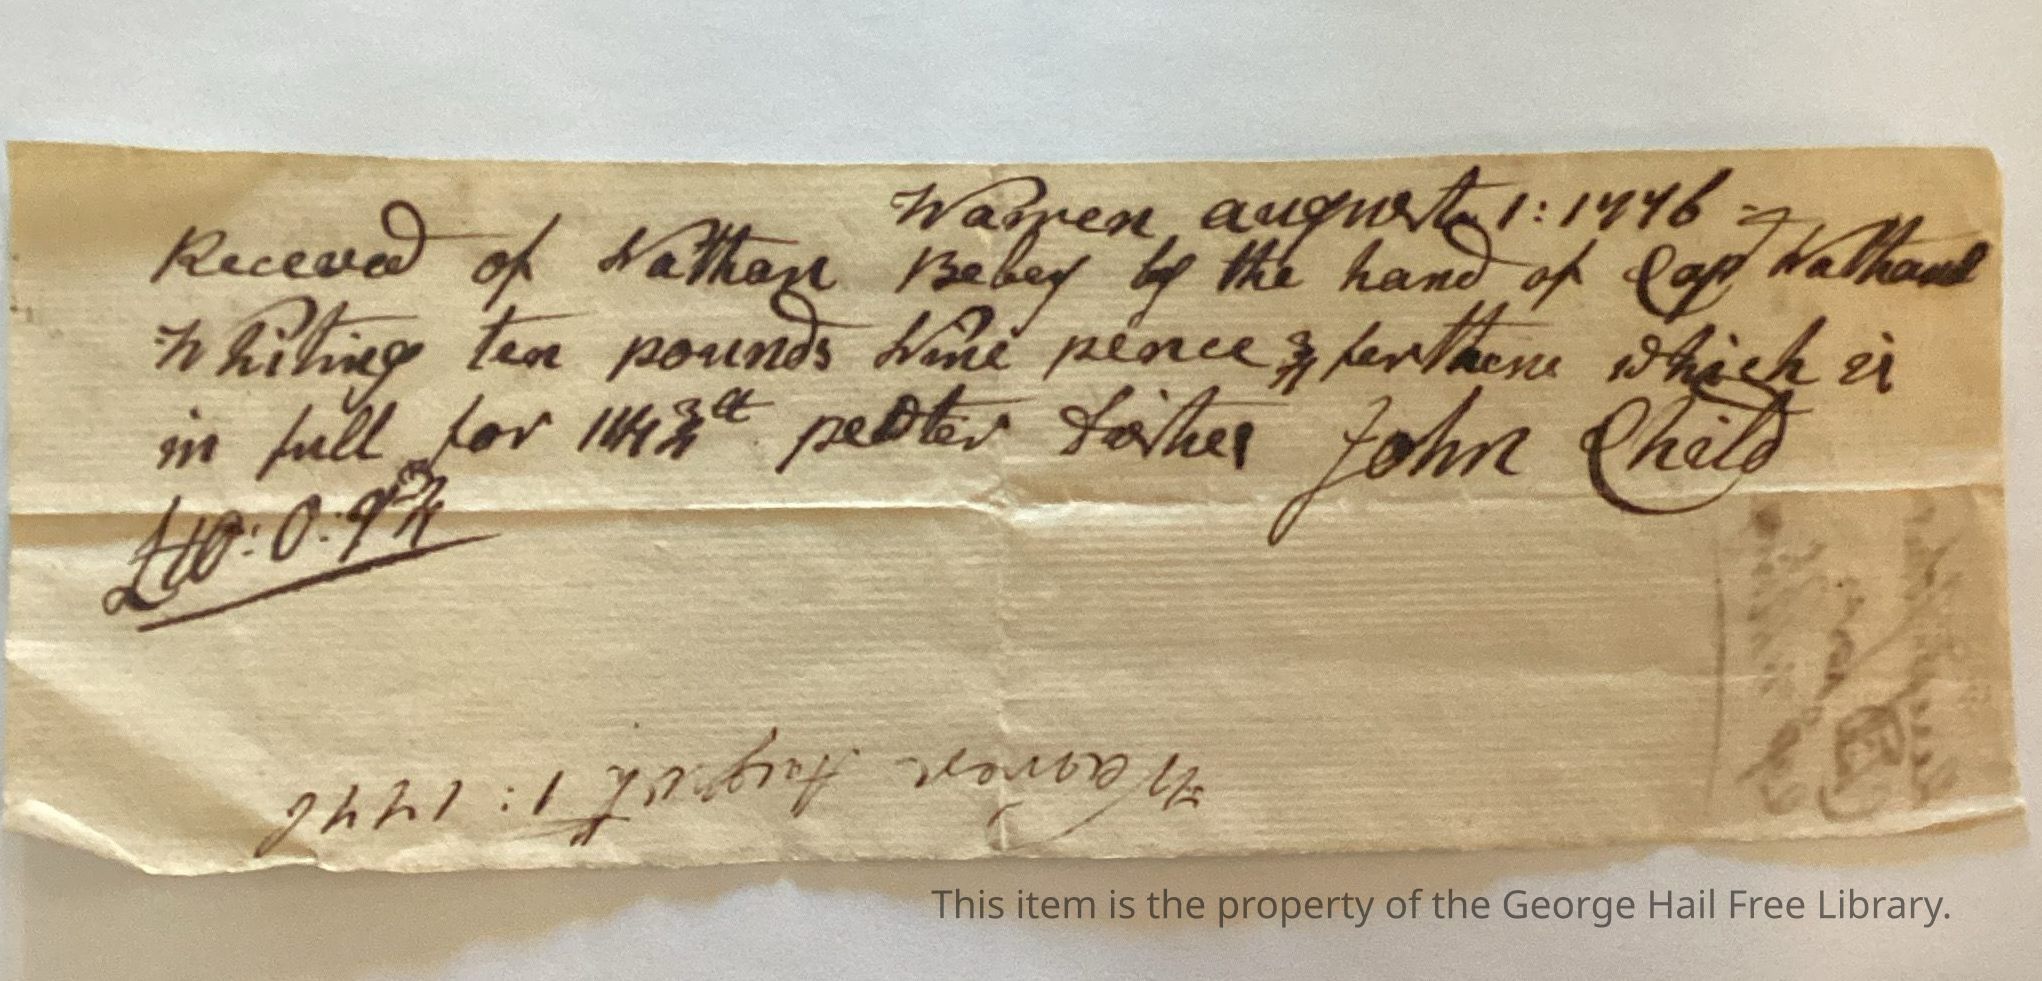 Warren august 1: 1776
Receved of Nathan Bebey by the hand of Cap Nathanel
Whiting ten pounds Nine pence 3/4 ferthens which is
in full for 144 3/4 lt pewter Dishes John Child
£10: 0: 9 3/4
Warren August 1: 1776
This item is the property of the George Hail Free Library.